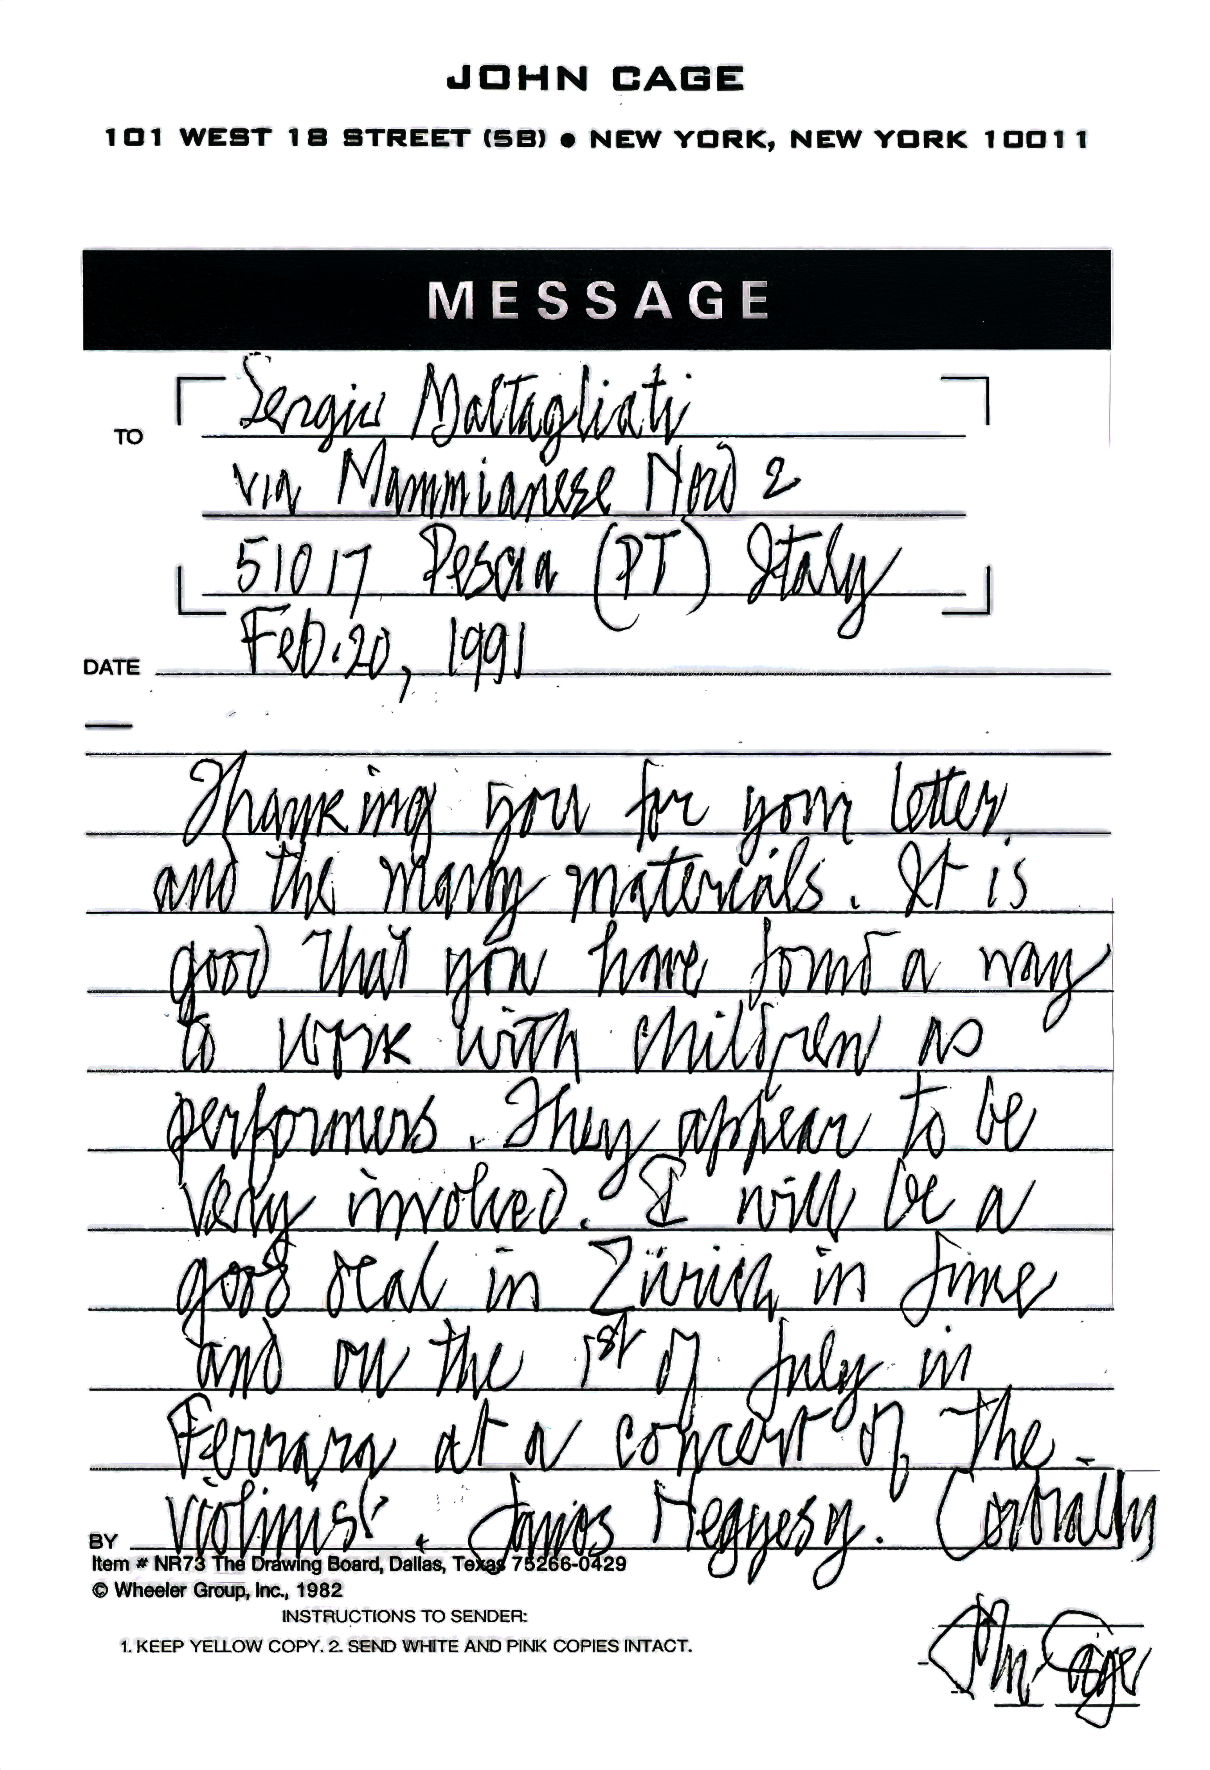 JOHN CAGE
101 WEST 18 STREET (5B) ● NEW YORK, NEW YORK 10011
MESSAGE
TO
Sergio Maltagliati
via Mammianese Nord 2
51017 Pescia (PT) Italy
DATE Feb. 20, 1991
Thanking you for your letter
and the many materials. It is
good that you have found a way
to work with children as
performers. They appear to be
very involved. I will be a
good deal in Zürich in June
and on the 1st of July in
Ferrara at a concert of the
BY violinist Janos Negyesy. Cordially
Item # NR73 The Drawing Board, Dallas, Texas 75266-0429
© Wheeler Group, Inc., 1982
INSTRUCTIONS TO SENDER:
1. KEEP YELLOW COPY. 2. SEND WHITE AND PINK COPIES INTACT.
John Cage